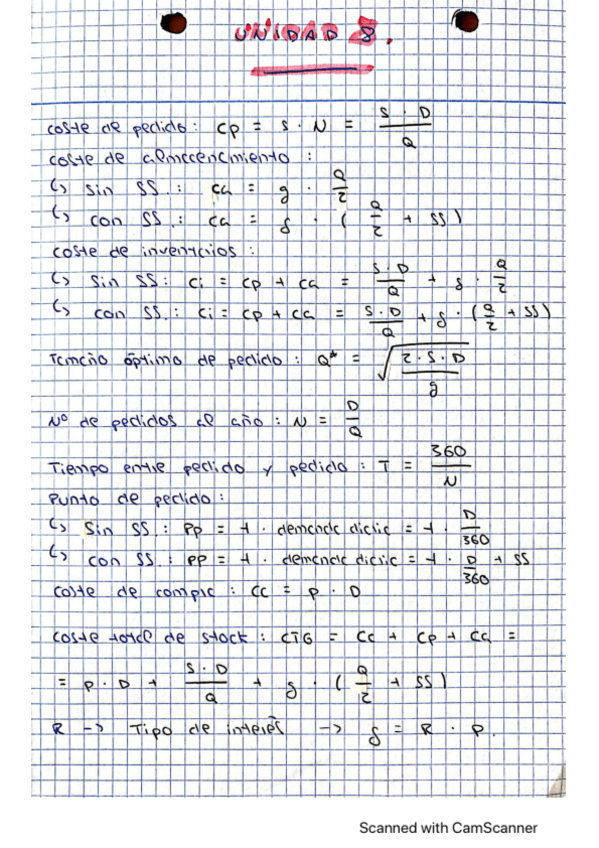 UNIDAD 8.
coste de pedido: Cp = S · N = S · D / Q
coste de almacenamiento :
↳ Sin SS.: ca = g · Q/2
↳ con SS.: ca = g · ( Q/2 + SS )
coste de inventarios :
↳ Sin SS: Ci = Cp + Ca = S·D/Q + g · Q/2
↳ con SS.: Ci = Cp + Ca = S·D/Q + g · ( Q/2 + SS )
Tamaño óptimo de pedido : Q* = √(2·S·D / g)
Nº de pedidos al año : N = D/Q
Tiempo entre pedido y pedido : T = 360/N
Punto de pedido :
↳ Sin SS.: Pp = t · demanda diaria = t · D/360
↳ con SS.: PP = t · demanda diaria = t · D/360 + SS
Coste de compra : CC = P · D
Coste total de stock : CTG = Cc + Cp + Ca =
= P · D + S · D / Q + g · ( Q/2 + SS )
R -> Tipo de interés -> g = R · P.
Scanned with CamScanner